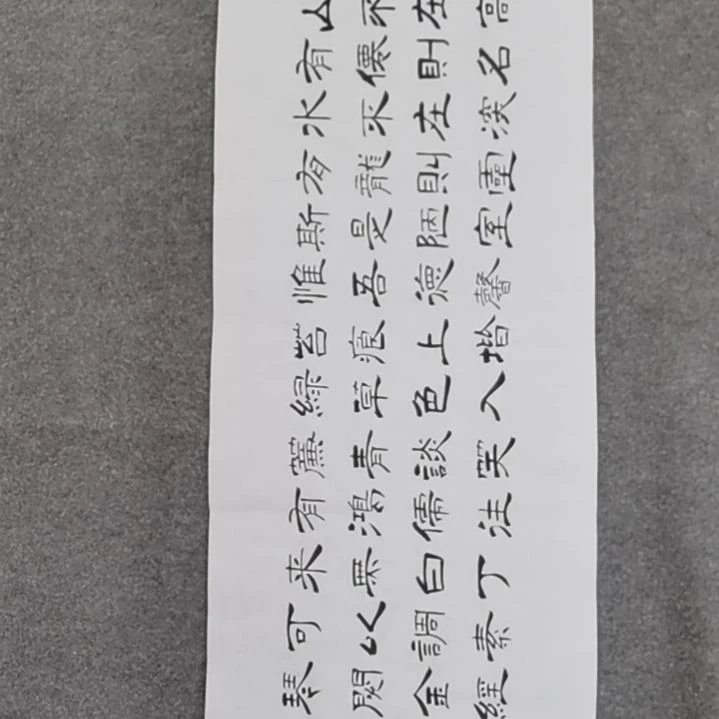 山不在高
有僊則名
水不在深
有龍則靈
斯是陋室
惟吾德馨
苔痕上堦
緑草色入
簾青談笑
有鴻儒往
来無白丁
可以調素
琴閱金經